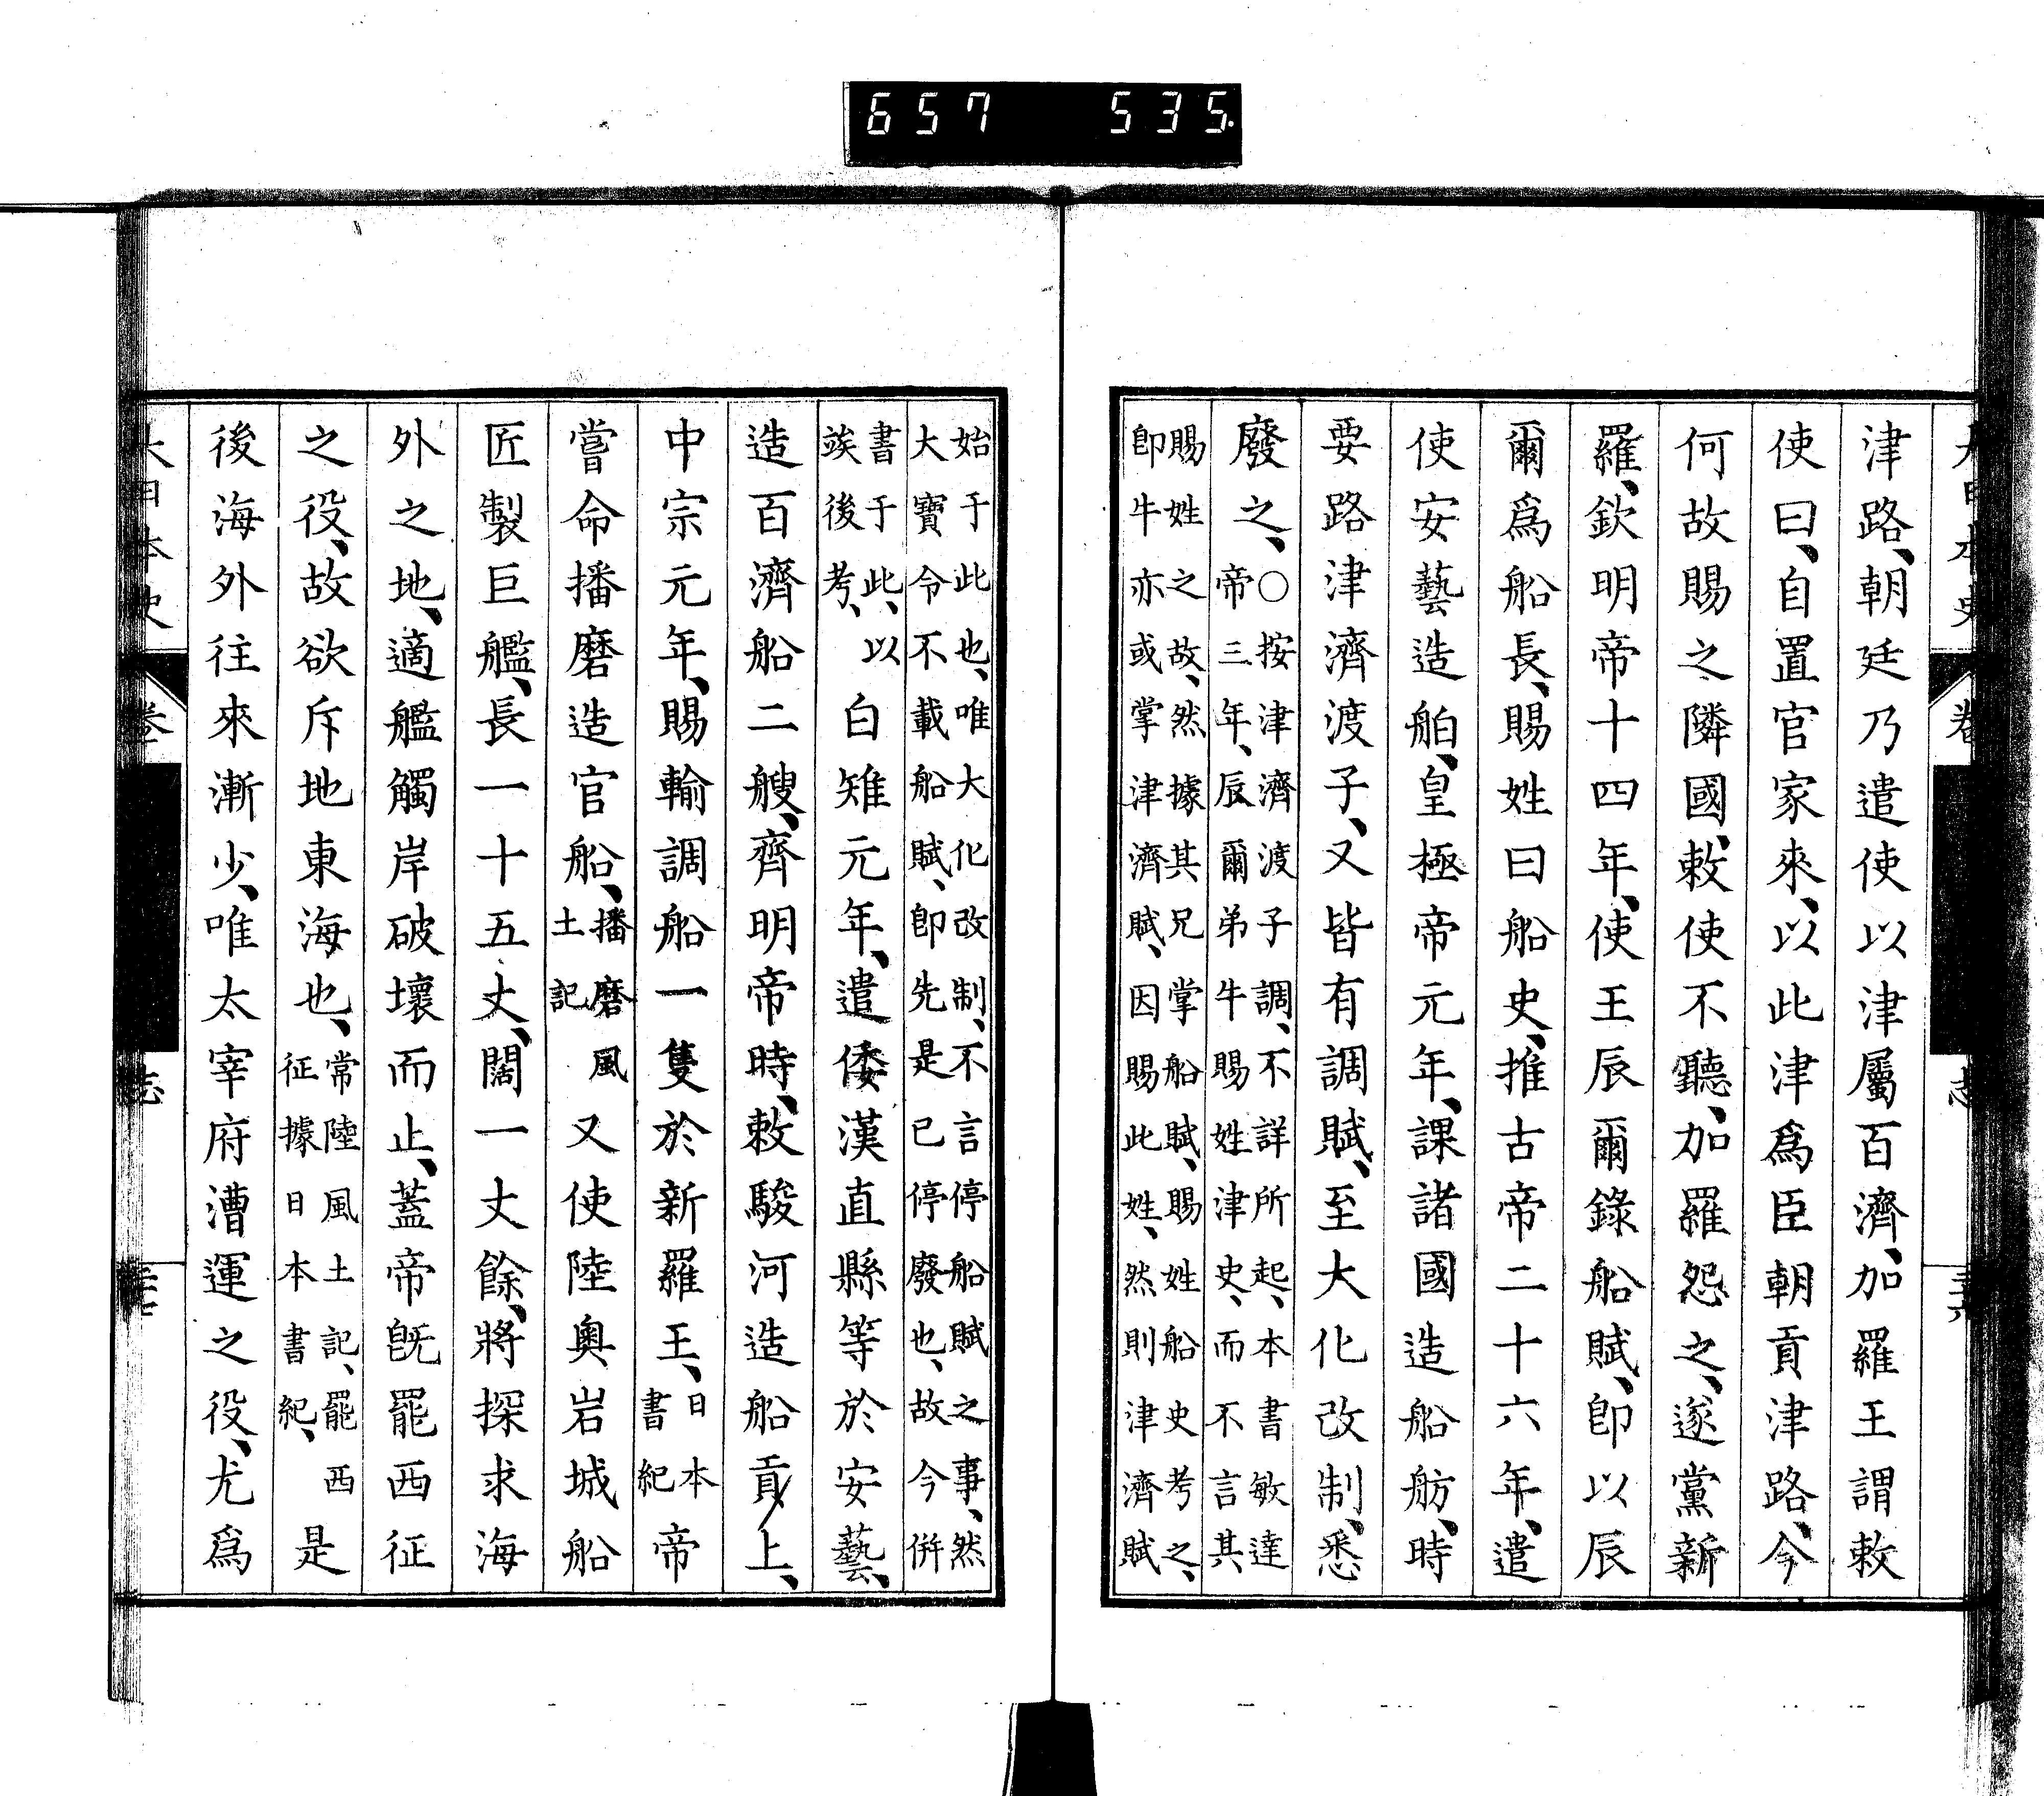 657 535.
津路、朝廷乃遣使以津屬百濟、加羅王謂敕
使曰、自置官家來、以此津爲臣朝貢津路、今
何故賜之隣國、敕使不聽、加羅怨之、遂黨新
羅、欽明帝十四年、使王辰爾錄船賦、卽以辰
爾爲船長、賜姓曰船史、推古帝二十六年、遣
使安藝造舶、皇極帝元年、課諸國造船舫、時
要路津濟渡子、又皆有調賦、至大化改制、悉
廢之、○按津濟渡子調、不詳所起、本書敏達
帝三年、辰爾弟牛賜姓津史、而不言其
賜姓之故、然據其兄掌船賦、賜姓船史考之、
卽牛亦或掌津濟賦、因賜此姓、然則津濟賦
始于此也、唯大化改制、不言停船賦之事、然
大寶令不載船賦、卽先是已停廢也、故今倂
書于此、以
竢後考、
白雉元年、遣倭漢直縣等於安藝、
造百濟船二艘、齊明帝時、敕駿河造船貢上、
中宗元年、賜輸調船一隻於新羅王、日本
書紀
帝
嘗命播磨造官船、播磨風
土記
又使陸奧岩城船
匠製巨艦、長一十五丈、闊一丈餘、將探求海
外之地、適艦觸岸破壞而止、蓋帝旣罷西征
之役、故欲斥地東海也、常陸風土記、罷西
征據日本書紀、
是
後海外往來漸少、唯太宰府漕運之役、尤爲
大日本史
卷
志